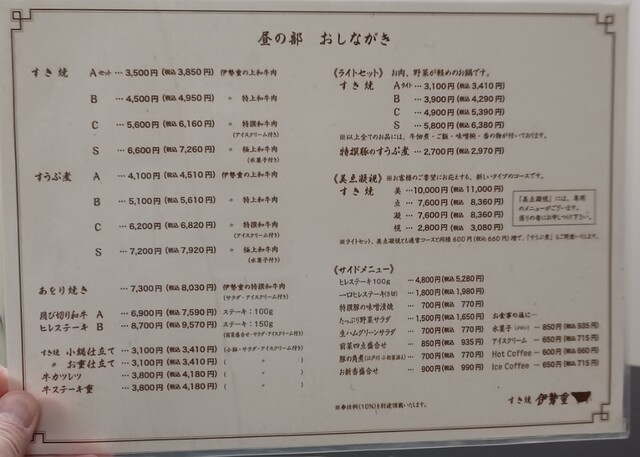 昼の部 おしながき
すき焼 Aセット … 3,500円 (税込 3,850円) 伊勢重の上和牛肉
B … 4,500円 (税込 4,950円) 〃 特上和牛肉
C … 5,600円 (税込 6,160円) 〃 特撰和牛肉
(アイスクリーム付き)
S … 6,600円 (税込 7,260円) 〃 極上和牛肉
(水菓子付き)
すうぷ煮 A … 4,100円 (税込 4,510円) 伊勢重の上和牛肉
B … 5,100円 (税込 5,610円) 〃 特上和牛肉
C … 6,200円 (税込 6,820円) 〃 特撰和牛肉
(アイスクリーム付き)
S … 7,200円 (税込 7,920円) 〃 極上和牛肉
(水菓子付き)
あをり焼き … 7,300円 (税込 8,030円) 伊勢重の特撰和牛肉
(サラダ・アイスクリーム付き)
飛び切り和牛 A … 6,900円 (税込 7,590円) ステーキ:100g
ヒレステーキ B … 8,700円 (税込 9,570円) ステーキ:150g
(前菜盛合せ・サラダ・アイスクリーム付き)
すき焼 小鍋仕立て … 3,100円 (税込 3,410円) (小鉢・サラダ・アイスクリーム付き)
〃 お重仕立て … 3,100円 (税込 3,410円) ( 〃 )
牛カツレツ … 3,800円 (税込 4,180円) ( 〃 )
牛ステーキ重 … 3,800円 (税込 4,180円) ( 〃 )
《ライトセット》 お肉、野菜が軽めのお鍋です。
すき焼 Aライト … 3,100円 (税込 3,410円)
B … 3,900円 (税込 4,290円)
C … 4,900円 (税込 5,390円)
S … 5,800円 (税込 6,380円)
※以上全てのお品には、牛佃煮・ご飯・味噌椀・香の物が付いております。
特撰豚のすうぷ煮 … 2,700円 (税込 2,970円)
《美点凝視》 ※お客様のご要望にお応えする、新しいタイプのコースです。
すき焼 美 … 10,000円 (税込 11,000円)
点 … 7,600円 (税込 8,360円)
凝 … 7,600円 (税込 8,360円)
視 … 2,800円 (税込 3,080円)
『美点凝視』には、専用
のメニューがございます。
係りの者にお申しつけ下さい。
※ライトセット、美点凝視とも通常コースと同様 600円 (税込 660円) 増で、「すうぷ煮」もご用意いたします。
《サイドメニュー》
ヒレステーキ100g … 4,800円 (税込 5,280円)
一口ヒレステーキ … 1,800円 (税込 1,980円)
特撰豚の味噌漬焼 … 700円 (税込 770円)
たっぷり野菜サラダ … 1,500円 (税込 1,650円)
生ハムグリーンサラダ … 700円 (税込 770円)
前菜四点盛合せ … 850円 (税込 935円)
豚の角煮 … 700円 (税込 770円)
お新香盛合せ … 900円 (税込 990円)
お食事の後に…
水菓子 — 850円 (税込 935円)
アイスクリーム — 650円 (税込 715円)
Hot Coffee — 600円 (税込 660円)
Ice Coffee — 650円 (税込 715円)
※奉仕料(10%)を別途頂戴いたします。
すき焼 伊勢重